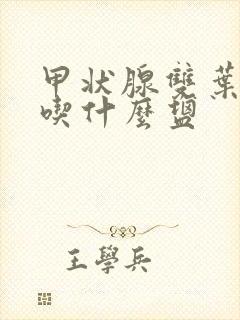 甲状腺雙葉
喫什麼盬
王學兵